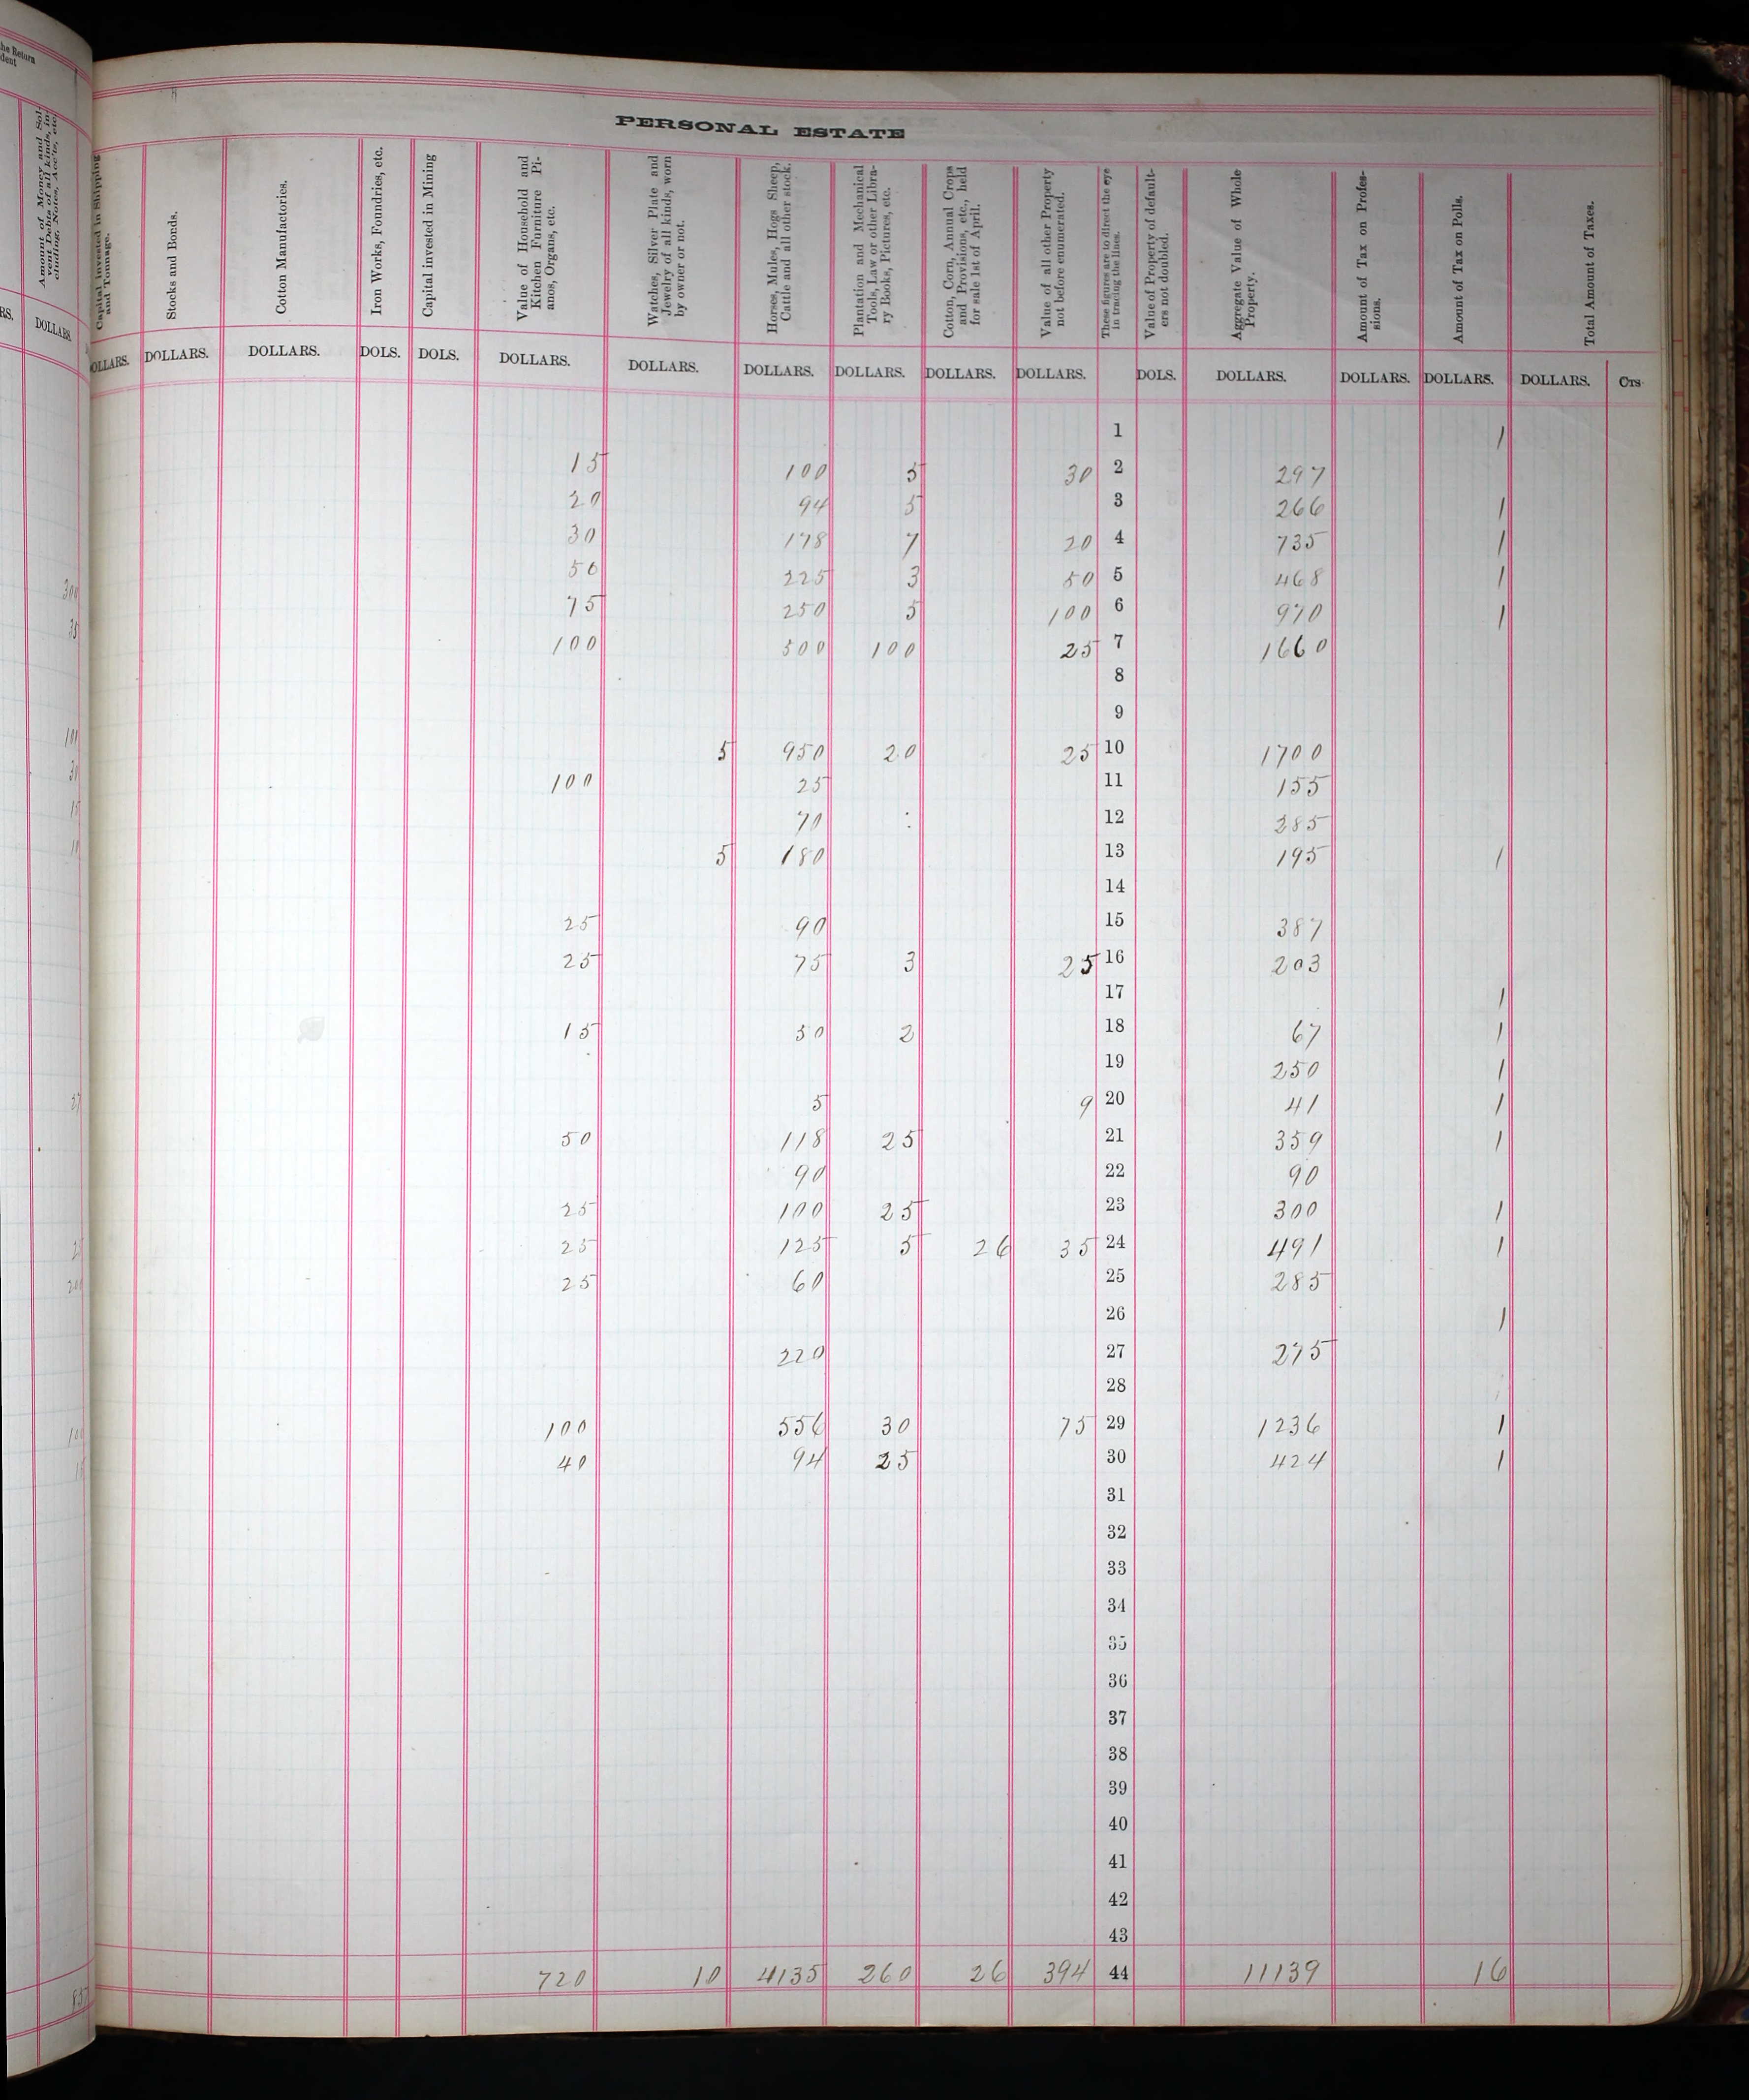 he Return
dent
PERSONAL ESTATE
Amount of Money and Sol-
vent Debts of all kinds, in-
cluding, Notes, Acc'ts, etc.
Capital Invested in Shipping
and Tonnage.
Stocks and Bonds.
Cotton Manufactories.
Iron Works, Foundries, etc.
Capital invested in Mining
Value of Household and
Kitchen Furniture Pi-
anos, Organs, etc.
Watches, Silver Plate and
Jewelry of all kinds, worn
by owner or not.
Horses, Mules, Hogs Sheep,
Cattle and all other stock.
Plantation and Mechanical
Tools, Law or other Libra-
ry Books, Pictures, etc.
Cotton, Corn, Annual Crops
and Provisions, etc., held
for sale 1st of April.
Value of all other Property
not before enumerated.
These figures are to direct the eye
in tracing the lines.
Value of Property of default-
ers not doubled.
Aggregate Value of Whole
Property.
Amount of Tax on Profes-
sions.
Amount of Tax on Polls.
Total Amount of Taxes.
RS. DOLLARS. DOLLARS. DOLLARS. DOLLARS. DOLS. DOLS. DOLLARS. DOLLARS. DOLLARS. DOLLARS. DOLLARS. DOLLARS. DOLS. DOLLARS. DOLLARS. DOLLARS. DOLLARS. CTS.
1 1
15 100 5 30 2 297
20 94 5 3 266 1
30 178 7 20 4 735 1
50 225 3 50 5 468 1
300 75 250 5 100 6 970 1
35 100 500 100 25 7 1660
8
9
5 950 20 25 10 1700
100 25 11 155
70 12 285
5 180 13 195 1
14
25 90 15 387
25 75 3 25 16 203
17 1
15 50 2 18 67 1
19 250 1
5 9 20 41 1
50 118 25 21 359 1
90 22 90
25 100 25 23 300 1
25 125 5 26 35 24 491 1
25 60 25 285
26 1
220 27 275
28
100 556 30 75 29 1236 1
40 94 25 30 424 1
31
32
33
34
35
36
37
38
39
40
41
42
43
720 10 4135 260 26 394 44 11139 16